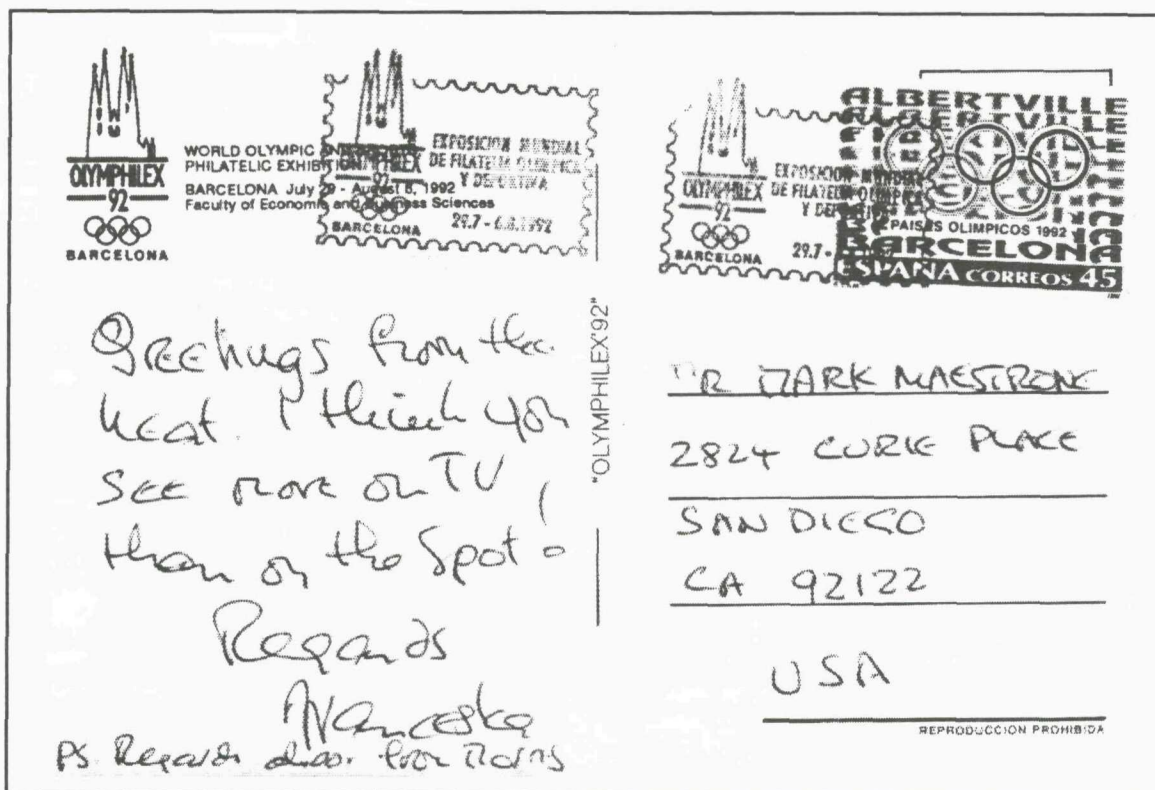 OLYMPHILEX
92
BARCELONA
WORLD OLYMPIC AND SPORTS
PHILATELIC EXHIBITION
BARCELONA July 29 - August 6, 1992
Faculty of Economic and Business Sciences
OLYMPHILEX
92
BARCELONA
EXPOSICION MUNDIAL
DE FILATELIA OLIMPICA
Y DEPORTIVA
29.7 - 6.8.1992
OLYMPHILEX
92
BARCELONA
EXPOSICION MUNDIAL
DE FILATELIA OLIMPICA
Y DEPORTIVA
29.7 -
ALBERTVILLE
PAISES OLIMPICOS 1992
BARCELONA
ESPAÑA CORREOS 45
Greetings from the
heat. I think you
see more on TV
than on the spot!
Regards
PS. Regards also from
"OLYMPHILEX'92"
MARK MAESTRONE
2824 CURIE PLACE
SAN DIEGO
CA 92122
USA
REPRODUCCION PROHIBIDA